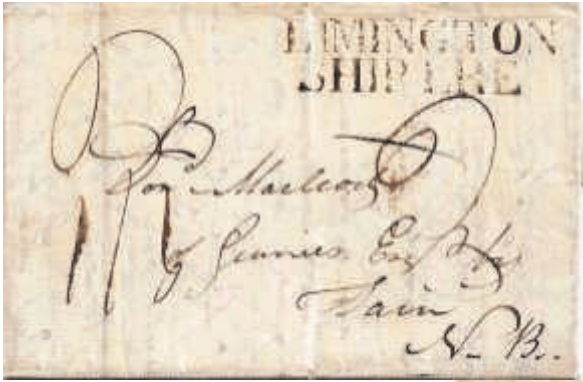 LIMINGTON
SHIP LRE
Don. Macleod
of Geanies Esqr
Tain
N. B.